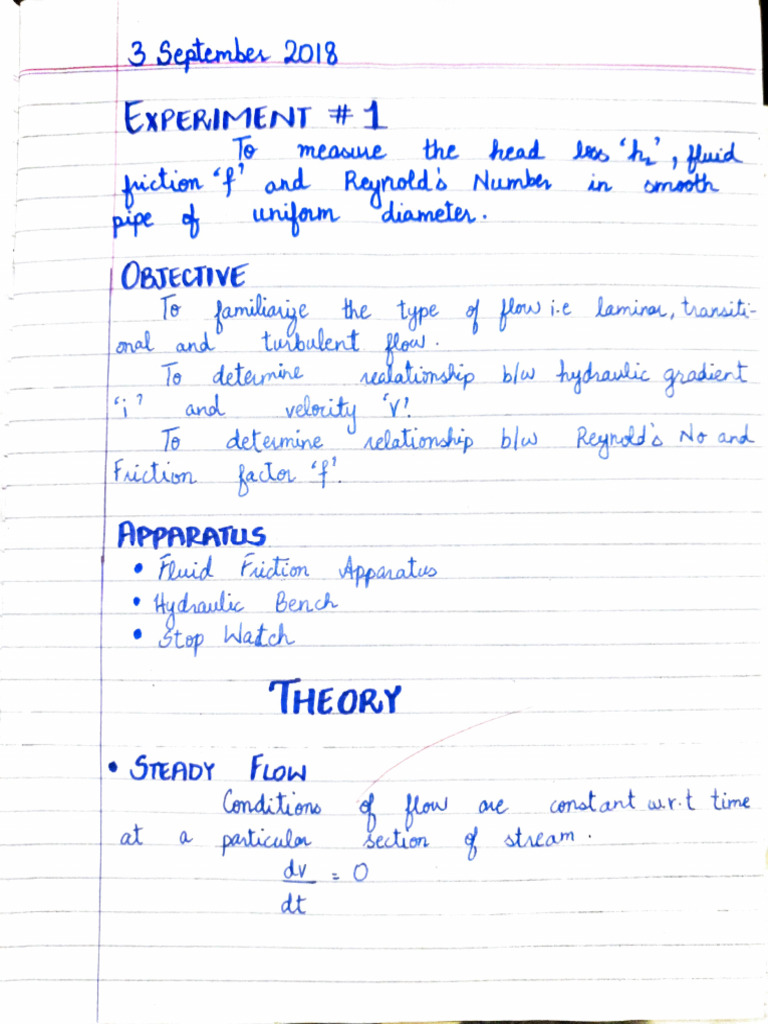 3 September 2018
EXPERIMENT # 1
To measure the head loss 'hL', fluid
friction 'f' and Reynold's Number in smooth
pipe of uniform diameter.
OBJECTIVE
To familiarize the type of flow i.e laminar, transiti-
onal and turbulent flow.
To determine realationship b/w hydraulic gradient
'i' and velocity 'V'.
To determine relationship b/w Reynold's No and
Friction factor 'f'.
APPARATUS
• Fluid Friction Apparatus
• Hydraulic Bench
• Stop Watch
THEORY
• STEADY FLOW
Conditions of flow are constant w.r.t time
at a particular section of stream.
dv = 0
dt